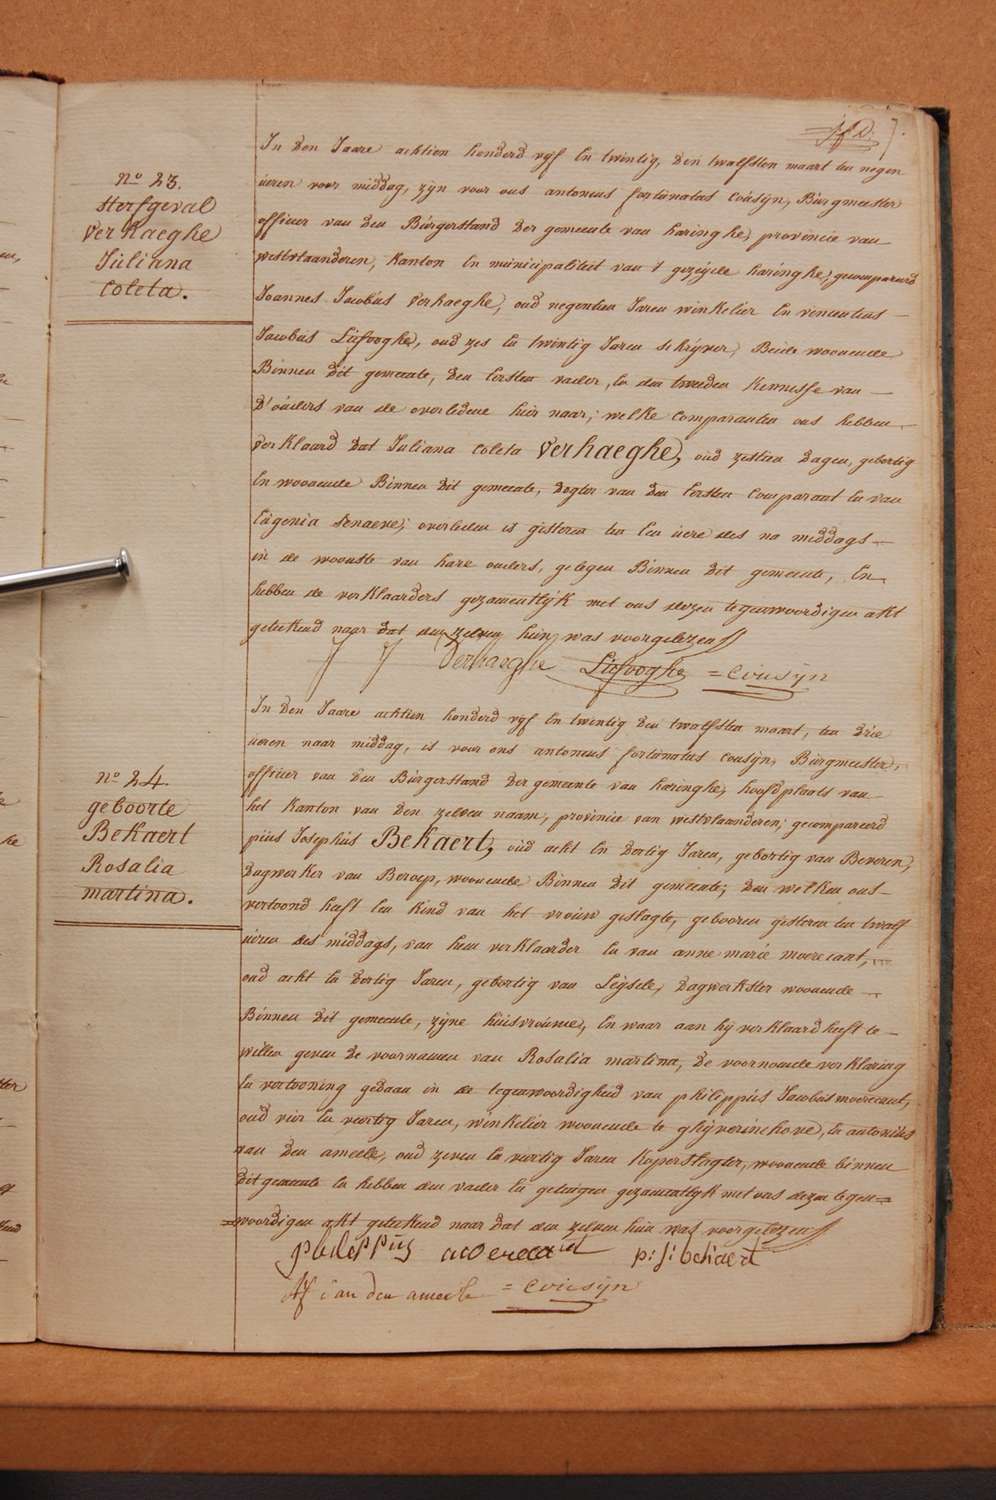 7.
n.o 23.
sterfgeval
Verhaeghe
Juliana
Coleta.
In den Jaare achtien honderd vyf En twintig, den twalfsten maart ten negen
ueren voor middag, zyn voor ons antoneus fortunatus Cousyn, Burgmeester
officier van den Burgerstand der gemeente van haringhe, provincie van
westvlaanderen, Kanton En municipaliteit van 't gezeyde haringhe, gecompareerd
Joannes Jacobus Verhaeghe, oud negentien Jaren winkelier En vincentius
Jacobus Liefooghe, oud zes En twintig Jaren schryver, Beide woonende
Binnen dit gemeente, den Eersten vader, En den tweeden Kennisse van
D'ouders van de overledene hier naar; welke Comparanten ons hebben
verklaard dat Juliana Coleta Verhaeghe, oud zestien dagen, gebortig
En woonende Binnen dit gemeente, dogter van den Eersten Comparant En van
Eugenia Denaeve; overleden is gisteren ten Een uere des na middags
in de wooнste van hare ouders, gelegen Binnen dit gemeente, En
hebben de verklaarders gezamentlyk met ons dezen tegenwoordigen akt
geteekend naar dat den zelven hun was voorgelezen
J J Verhaeghe Liefooghe = Cousyn
n.o 24.
geboorte
Bekaert
Rosalia
martina.
In den Jaare achtien honderd vyf En twintig den twalfsten maart, ten drie
ueren naar middag, is voor ons antoneus fortunatus Cousyn, Burgmeester,
officier van den Burgerstand der gemeente van haringhe, hoofdplaats van
het Kanton van den zelven naam, provincie van westvlaanderen; gecompareerd
pius Josephus Bekaert, oud acht En dertig Jaren, gebortig van Beveren,
Dagwerker van Beroep, woonende Binnen dit gemeente; den welken ons
vertoond heeft Een Kind van het vrouw geslagte, geboren gisteren ten twalf
ueren des middags, van hem verklaarder En van anne marie moerecant,
oud acht En dertig Jaren, gebortig van Leysele, Dagwerkster woonende
Binnen dit gemeente, zyne huisvrouwe, En waar aan hy verklaard heeft te
willen geven de voornamen van Rosalia martina, De voornoemde verklaring
En vertooning gedaan in de tegenwoordigheid van philippus Jacobus moerecant,
oud vier En veertig Jaren, winkelier woonende te ghyverinchove, En antonius
van den ameele, oud zeven En veertig Jaren Koperslagter, woonende binnen
dit gemeente En hebben den vader En getuigen gezamentlyk met ons dezen tegen=
=woordigen akt geteekend naar dat den zelven hun was voorgelezen
philippus moerecant p: j: bekaert
van den ameele = Cousyn